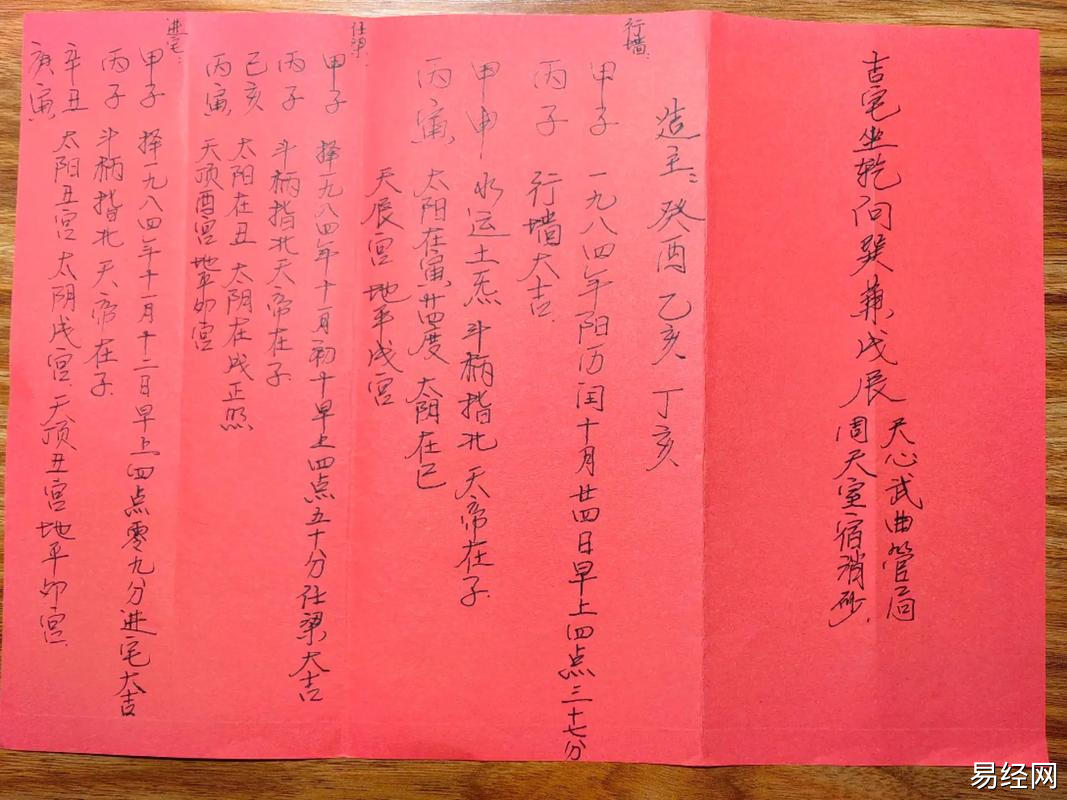 吉宅坐乾向巽兼戌辰
天心武曲管局
周天室宿消砂
造主:癸酉 乙亥 丁亥
行墙:
甲子 一九八四年阳历闰十月廿四日早上四点三十七分
丙子 行墙大吉
甲申 水运土炁 斗柄指北 天帝在子
丙寅 太阳在寅廿四度 太阳在巳
天辰宫 地平戌宫
任梁:
甲子 择一九八四年十一月初十早上四点五十分任梁大吉
丙子 斗柄指北天帝在子
己亥 太阳在丑 太阴在戌正照
丙寅 天顶酉宫 地平卯宫
进宅:
甲子 择一九八四年十一月十二日早上四点零九分进宅大吉
丙子 斗柄指北 天帝在子
辛丑 太阳丑宫 太阴戌宫 天顶丑宫 地平卯宫
庚寅
易经网